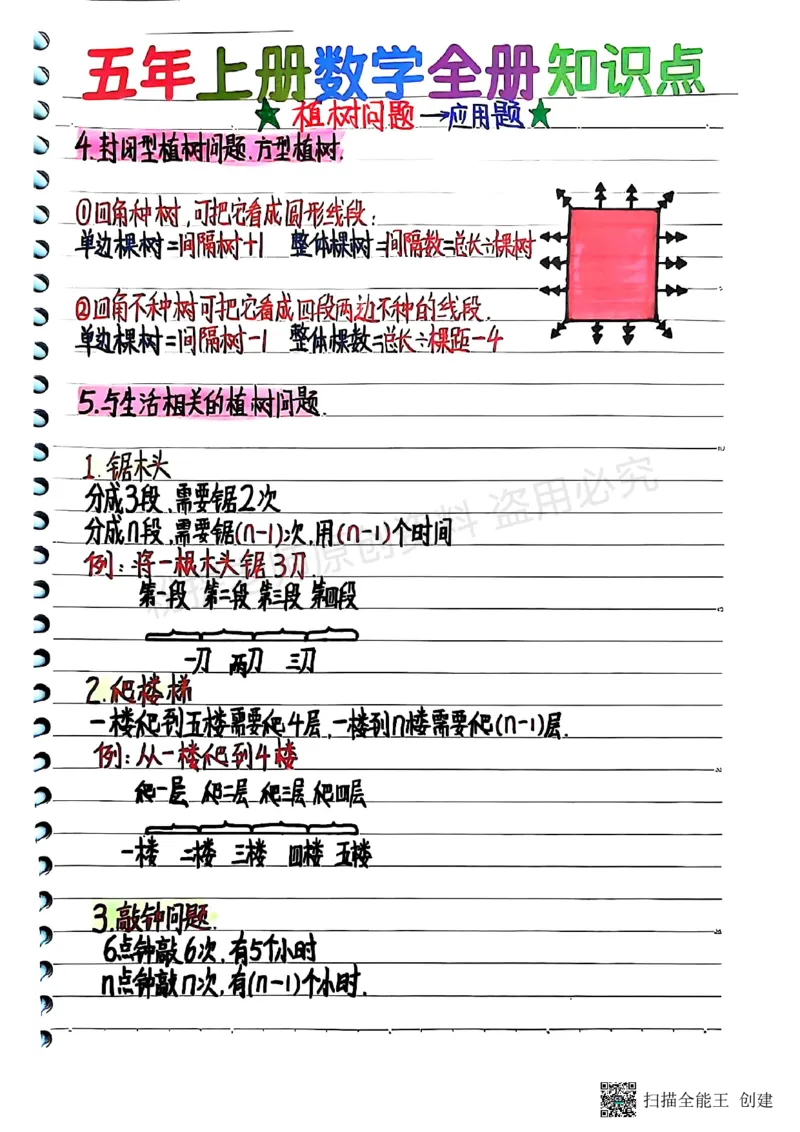 五年上册数学全册知识点
植树问题→应用题
4.封闭型植树问题.方型植树.
①回角种树,可把它看成圆形线段:
单边棵树=间隔树+1 整体棵树=间隔数=总长÷棵树
②回角不种树可把它看成四段两边不种的线段.
单边棵树=间隔树-1 整体棵数=总长÷棵距-4
5.与生活相关的植树问题.
1.锯木头
分成3段,需要锯2次
分成n段,需要锯(n-1)次,用(n-1)个时间
例:将一根木头锯3刀.
第一段 第二段 第三段 第四段
一刀 两刀 三刀
2.爬楼梯
一楼爬到五楼需要爬4层,一楼到n楼需要爬(n-1)层.
例:从一楼爬到4楼
爬一层 爬二层 爬三层 爬四层
一楼 二楼 三楼 四楼 五楼
3.敲钟问题.
6点钟敲6次,有5个小时
n点钟敲n次,有(n-1)个小时.
原创资料 盗用必究
扫描全能王 创建